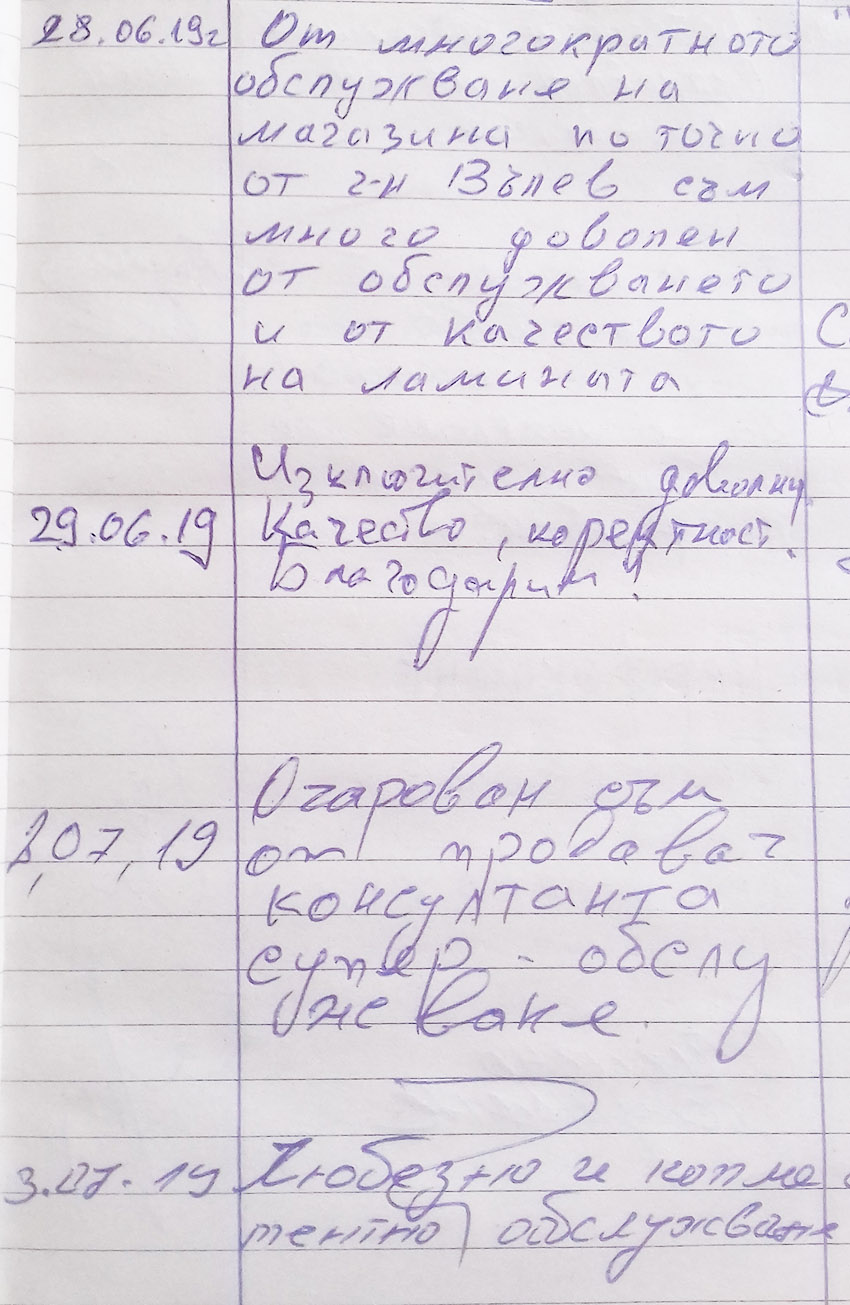 28.06.19г От многократното
обслужване на
магазина по точно
от г-н Вълев съм
много доволен
от обслужването
и от качеството
на ламината
Изключително доволни
29.06.19 Качество, коректност!
Благодарим!
1,07,19 Очарован съм
от продавач
консултанта
супер - обслу
жване.
3.07.19 Любезно и копме
тентно обслужване